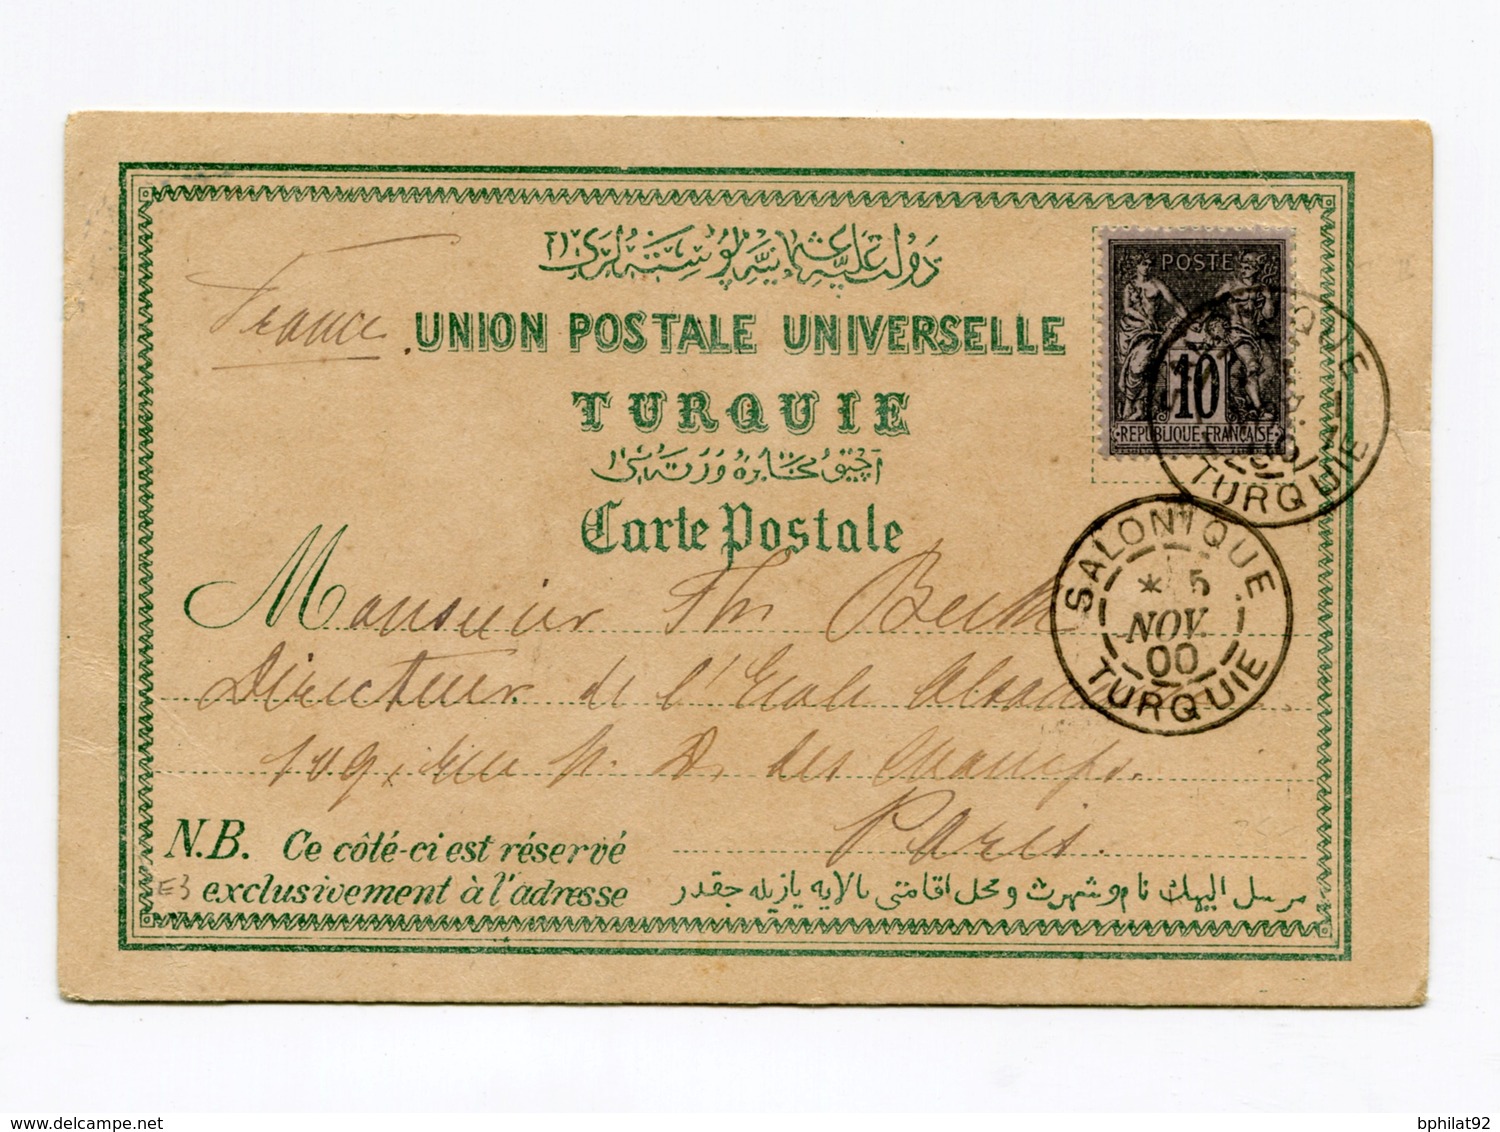 دولت علیهٔ عثمانیه پوسته لری
France.
UNION POSTALE UNIVERSELLE
TURQUIE
آچیق مخابره ورقه سی
Carte Postale
POSTE
10
REPUBLIQUE FRANÇAISE
TURQUIE
SALONIQUE
* 5
NOV.
00
TURQUIE
Monsieur Th. Beck
Directeur de l'Ecole Alsacienne
109, rue N. D. des Champs.
Paris.
N.B. Ce côté-ci est réservé
exclusivement à l'adresse
E3
مرسل الیهك نام و شهرت و محل اقامتی بالایه یازیله جقدر
bphilat92